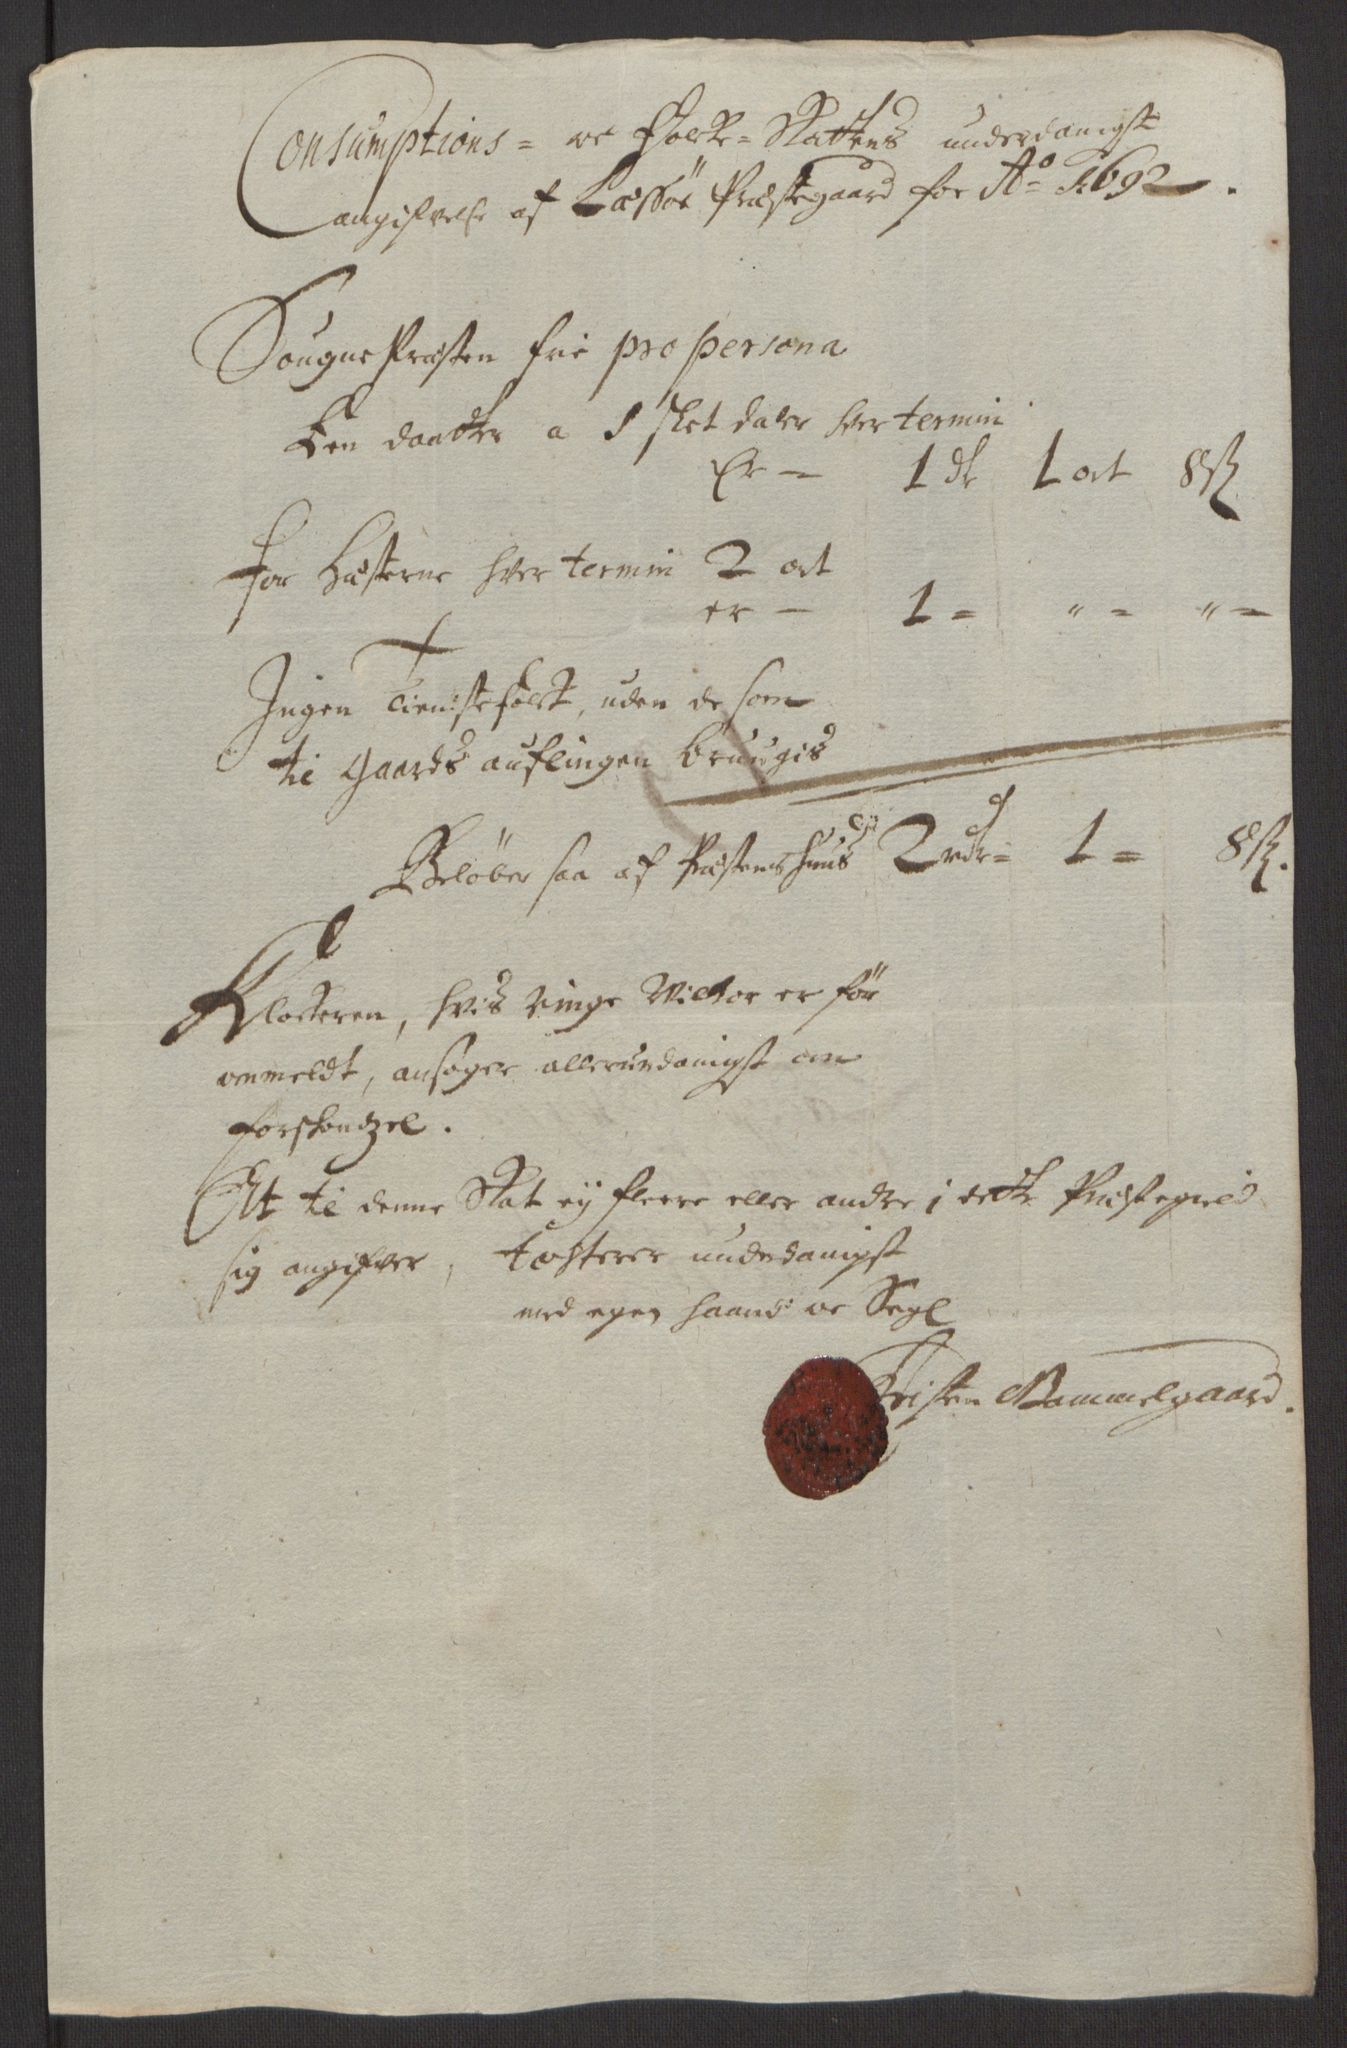 Consumptions = oc Folcke = Skattens underdanigste
angifvelse af Læssöe Præstegaard for Ao 1692.
SougnePræsten frie pro persona
Een daatter a 1 slet daler hver termin
Er — 1 dr 1 ort 8 sk
For Hæsterne hver termin 2 ort
er — 1 = " = " =
Ingen tienistefolck, uden de som
til gaards auflingen bruugis
Belöber saa af Præstens Huus 2 rdr = 1 = 8 sk.
Klockeren, hvis ringe Vilkor er för
ommeldt, ansöger allerundanigst om
forskondzel.
At til denne Skat ej fleere eller andre i dette Præstegield
sig angifver, testerer underdanigst
med egen haand oc Segl
Kristen Gammelgaard.